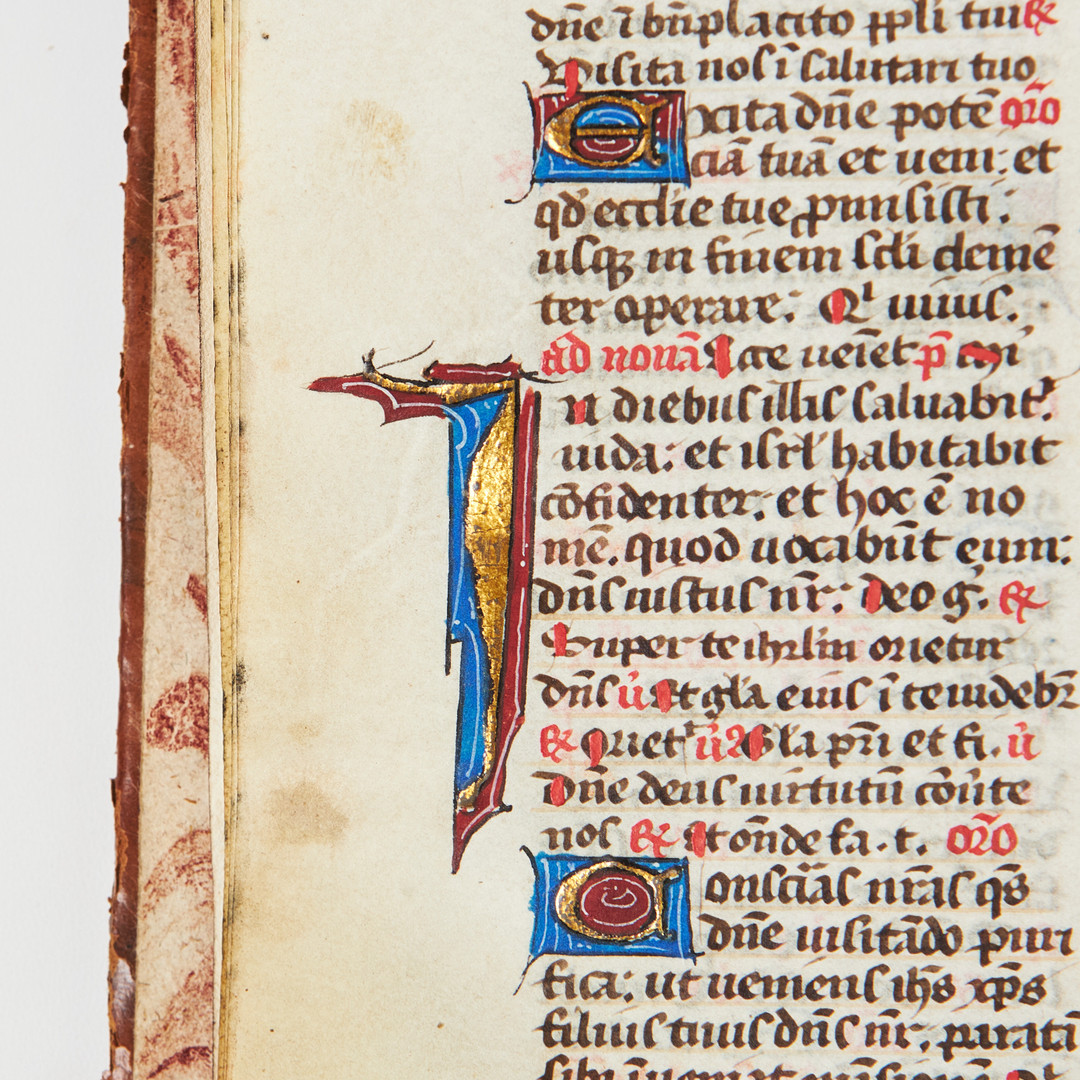 dn̄e ī bn̄placito ppl̄i tui ℟
Visita nos ī salutari tuo
Excita dn̄e potē oro
ciā tuā et ueni: et
qd̄ ecclie tue promisisti.
usq; in finem scl̄i clemē
ter operare: Qi uiuis.
ad nonā Ecce ueiet p̄
In diebus illis saluabit̉.
iuda: et isrl̄ habitabit
cōfidenter: et hoc ē no
mē. quod uocabūt eum:
dn̄s iustus nr̄: Deo g̃. ℟
Super te ihrl̄m orietur
dn̄s ỉ Et gl̄a eius ī te uideb̄r
℟ Oriet̉ ỉ Gl̄a pr̄i et fi. ỉ
Dn̄e deus uirtutū cōuͥte
nos ℟ Et ōnde fa. t. oro
Consciā̄s nr̄as qs̄
dn̄e uisitādo puri
fica: ut ueniens ihs̄ xps̄
filius tuus dn̄s nr̄. paratā
sibi